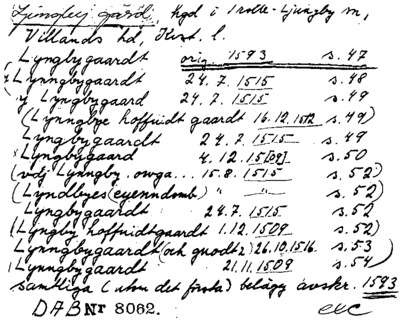 Ljungby gård, hgd i Trolle-Ljungby sn,
Villands hd, Krist. l.
Lyngbygaardt orig. 1593 s. 47
y Lynngbygaardt 24.7. 1515 s. 48
y Lyngbygaard 24.7. 1515 s. 49
(Lynngbye hoffuidt gaardt 16.12.1512 s. 49)
Lyngbygaardt 24.7. 1515 s. 49
Lyngbygaard 4.12. 15[09] s. 50
(vdj Lynngby. owga... 15.8. 1515 s. 52)
(Lyndbyes (eyenndomb) " — " s. 52)
Lyngbygaardt 24.7. 1515 s. 52
(Lyngby hoffuidtgaardt 1.12. 1509 s. 52)
Lynngbygaardt (och guodtz) 26.10.1516. s. 53
Lynngbygaardt 21.11.1509 s. 54)
samtliga (utom det första) belägg avskr. 1593
DAB Nr 8062. etc